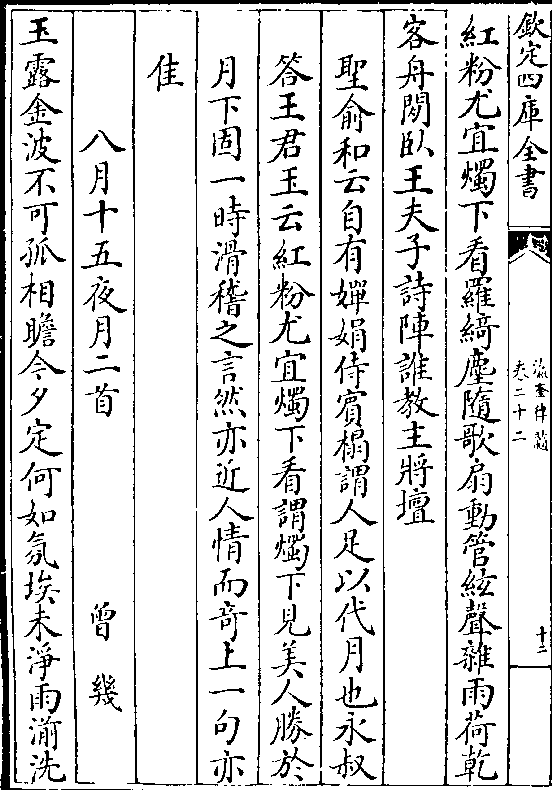 欽定四庫全書
瀛奎律髓
卷二十二
十二
紅粉尤宜燭下看羅綺塵隨歌扇動管絃聲雜雨荷乾
客舟閑臥王夫子詩陣誰教主將壇
聖俞和云自有嬋娟侍賓榻謂人足以代月也永叔
答王君玉云紅粉尤宜燭下看謂燭下見美人勝於
月下固一時滑稽之言然亦近人情而竒上一句亦
佳
八月十五夜月二首 曾幾
玉露金波不可孤相瞻今夕定何如氛埃未淨雨湔洗